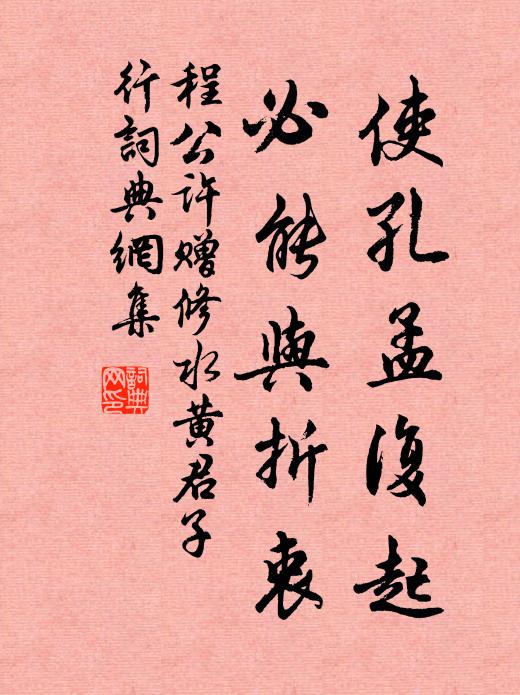 使孔孟復起
必能與折衷
程公許贈修水黃君子
行詞典網集
詞典
网印